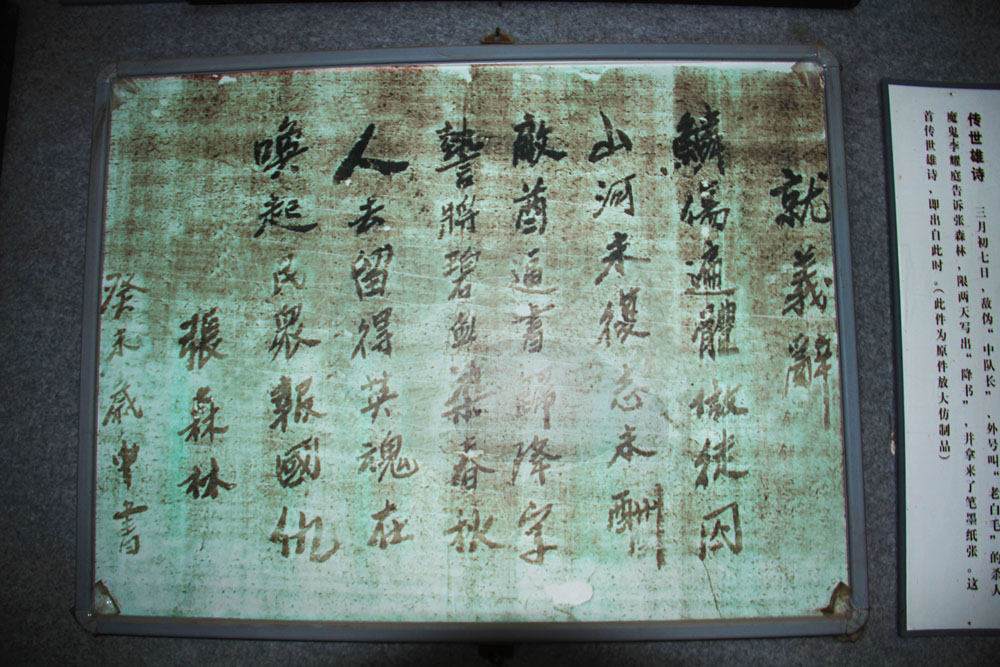 就義辭
鱗傷遍體做徒囚
山河未復志未酬
敵酋逼書歸降字
誓將碧血染春秋
人去留得英魂在
喚起民眾報國仇
張森林
癸未歲中書
传世雄诗 三月初七日，敌伪“中队长”，外号叫“老白毛”的杀人
魔鬼李耀庭告诉张森林，限两天写出“降书”，并拿来了笔墨纸张。这
首传世雄诗，即出自此时。（此件为原件放大仿制品）